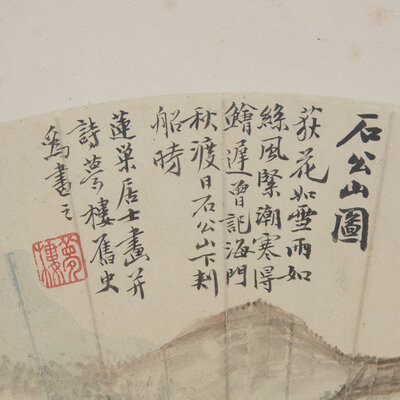 石公山圖
荻花如雪雨如
絲風緊潮寒得
鱠遲曾記海門
秋渡日石公山下刺
船時
蓮巢居士畫并
詩夢樓舊史
為書之
夢樓